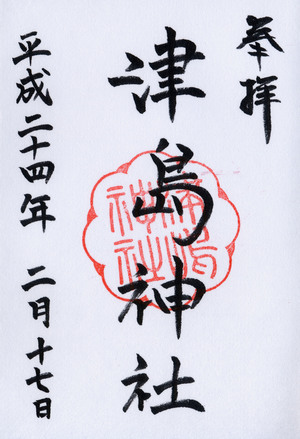 奉拝
津島神社
津島神社
平成二十四年 二月十七日